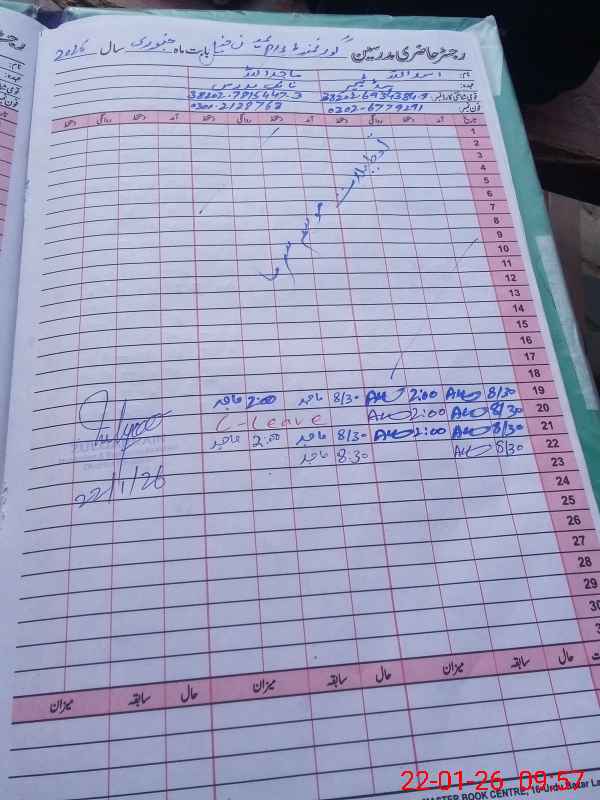 رجسٹر حاضری مدرسین گورنمنٹ بابت ماہ جنوری سال 2026
نام: اسد اللہ ساجد اللہ
عہدہ: ہیڈ ٹیچر نائب مدرس
38202-7815447-3
فون نمبر: 0302-6779291 0301-2128763
تاریخ آمد دستخط روانگی دستخط آمد دستخط روانگی دستخط آمد دستخط روانگی دستخط
1
2
3
4
5
6
7
8
9
10
11
12
13
14
15
16
17
18
19 8/30 2:00 8/30 ماجد 2:00 ماجد
20 8/30 2:00 C-Leave
21 8/30 2:00 8/30 ماجد 2:00 ماجد
22 8/30 8:30 ماجد
23
24
25
26
27
28
29
30
تعطیلات موسم سرما
22/1/26
حال سابقہ میزان حال سابقہ میزان حال سابقہ میزان
MASTER BOOK CENTRE, 16-Urdu Bazar La
22-01-26 09:57